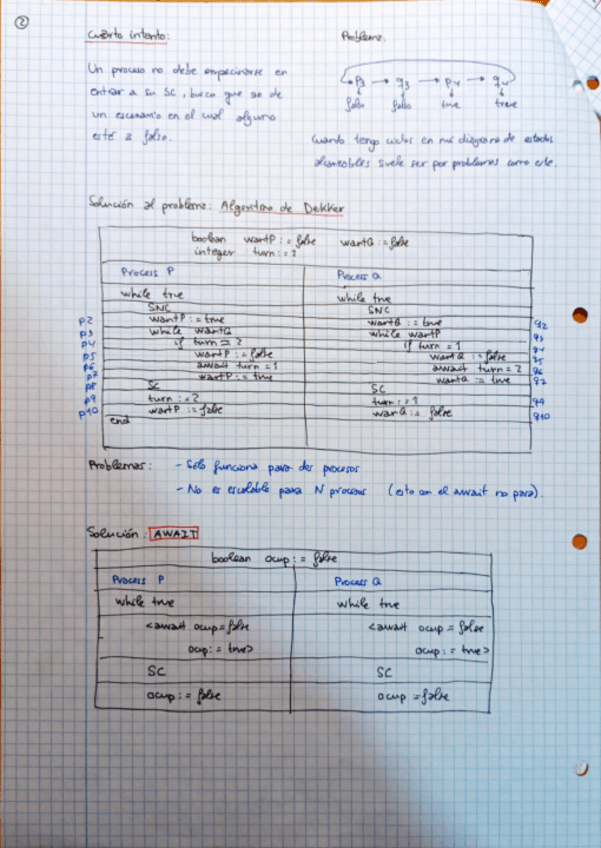 2
Cuarto intento:
Un proceso no debe empecinarse en
entrar a su SC, busca que se de
un escenario en el cual alguno
esté a falso.
Problema.
p3 → q3 → p4 → q4
falso falso true true
Cuando tengo ciclos en mi diagrama de estados
alcanzables suele ser por problemas como este.
Solución al problema: Algoritmo de Dekker
boolean wantP := false wantQ := false
integer turn := 2
Process P
Process Q
while true
while true
SNC
SNC
p2 wantP := true
wantQ := true q2
p3 while wantQ
while wantP q3
p4 if turn = 2
if turn = 1 q4
p5 wantP := false
wantQ := false q5
p6 await turn = 1
await turn = 2 q6
p7 wantP := true
wantQ := true q7
p8 SC
SC
p9 turn := 2
turn := 1 q9
p10 wantP := false
wantQ := false q10
end
Problemas: - Sólo funciona para dos procesos
- No es escalable para N procesos (esto con el await no pasa).
Solución: AWAIT
boolean ocup := false
Process P
Process Q
while true
while true
<await ocup = false
<await ocup = false
ocup := true>
ocup := true>
SC
SC
ocup := false
ocup = false